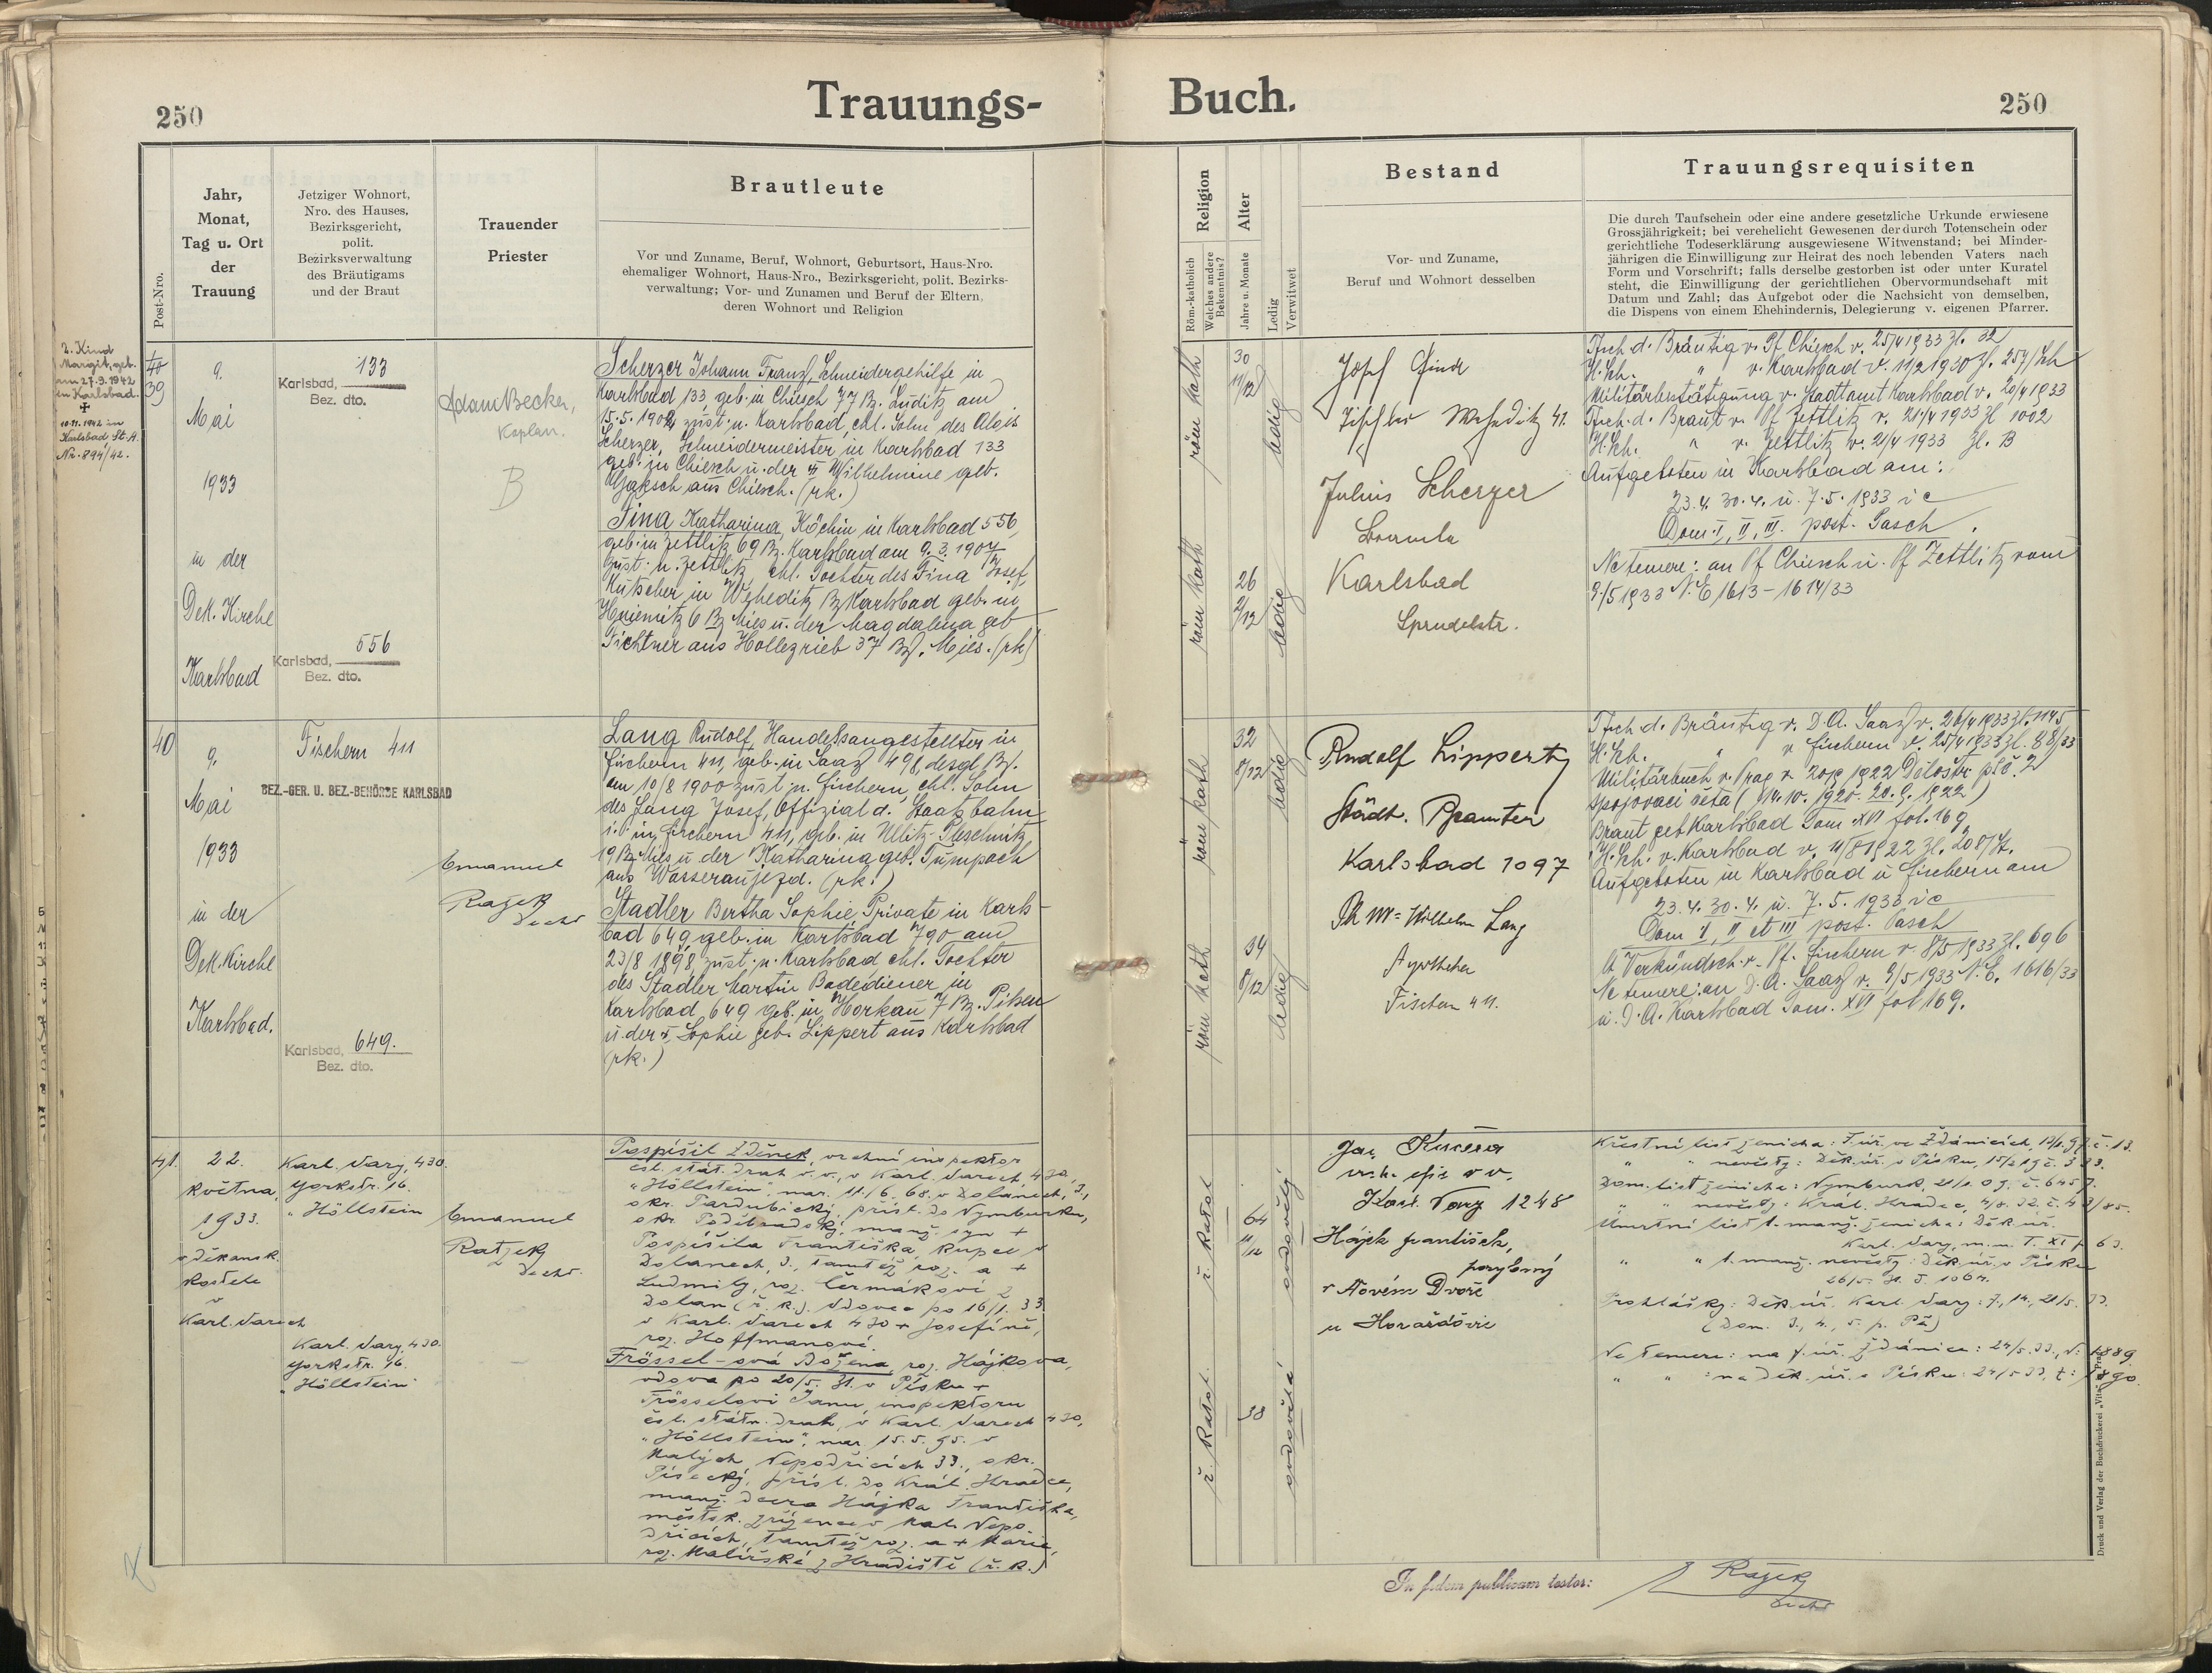 250
Trauungs-
Buch.
250
Post-Nro.
Jahr,
Monat,
Tag u. Ort
der
Trauung
Jetziger Wohnort,
Nro. des Hauses,
Bezirksgericht,
polit.
Bezirksverwaltung
des Bräutigams
und der Braut
Trauender
Priester
Brautleute
Vor und Zuname, Beruf, Wohnort, Geburtsort, Haus-Nro.
ehemaliger Wohnort, Haus-Nro., Bezirksgericht, polit. Bezirks-
verwaltung; Vor- und Zunamen und Beruf der Eltern,
deren Wohnort und Religion
Religion
Röm.-katholich
Welches andere
Bekenntnis?
Alter
Jahre u. Monate
Ledig
Verwitwet
Bestand
Vor- und Zuname,
Beruf und Wohnort desselben
Trauungsrequisiten
Die durch Taufschein oder eine andere gesetzliche Urkunde erwiesene
Grossjährigkeit; bei verehelicht Gewesenen der durch Totenschein oder
gerichtliche Todeserklärung ausgewiesene Witwenstand; bei Minder-
jährigen die Einwilligung zur Heirat des noch lebenden Vaters nach
Form und Vorschrift; falls derselbe gestorben ist oder unter Kuratel
steht, die Einwilligung der gerichtlichen Obervormundschaft mit
Datum und Zahl; das Aufgebot oder die Nachsicht von demselben,
die Dispens von einem Ehehindernis, Delegierung v. eigenen Pfarrer.
2. Kind
Margit, geb.
am 27.9.1942
in Karlsbad.
+
10.11.1942 in
Karlsbad St.A.
Nr. 894/42.
40
39
9.
Mai
1933
in der
Dek. Kirche
Karlsbad
133
Karlsbad,
Bez. dto.
556
Karlsbad,
Bez. dto.
Adam Becker,
Kaplan.
B
Scherzer Johann Franz, Schneidergehilfe in
Karlsbad 133 geb. in Chiesch 77 Bz. Luditz am
15.5.1902 zust. n. Karlsbad, ehl. Sohn des Alois
Scherzer, Schneidermeister in Karlsbad 133
geb. in Chiesch u. der + Wilhelmine geb.
aus Chiesch. (rk.)
Tina Katharina, Köchin in Karlsbad 556,
geb. in Zettlitz 69 Bz. Karlsbad am 9.3.1907
zust. n. Zettlitz ehl. Tochter des Tina Josef,
Kutscher in Weheditz Bz Karlsbad geb. in
Hniemitz 6 Bz Mies u. der Magdalena geb
Tichtner aus Hollezrieb 37 Bz. Mies. (rk)
röm kath
30
11/12
ledig
röm kath
26
2/12
ledig
Josef
Weheditz 41.
Julius Scherzer
Karlsbad
Sprudelstr.
Tfsch. d. Bräutig v. Pf Chiesch v. 25/4 1933 Zl. 32
H.Sch. " v. Karlsbad v. 11/2 1930 Zl. 257/Sch
Militärbestätigung v. Stadtamt Karlsbad v. 20/4 1933
Tfsch. d. Braut v. Pf Zettlitz v. 21/4 1933 Zl 1002
H.Sch. " v. Zettlitz v. 21/4 1933 Zl. B
Aufgeboten in Karlsbad am:
23.4. 30.4. u. 7.5. 1933 i e
Dom. I, II, III. post. Pasch.
Ne temere: an Pf Chiesch u. Pf Zettlitz vom
9./5 1933 N.E 1613-1614/33
40
9.
Mai
1933
in der
Dek. Kirche
Karlsbad.
Fischern 411
BEZ.-GER. U. BEZ.-BEHÖRDE KARLSBAD
Karlsbad, 649.
Bez. dto.
Emanuel
Ratzek
Decht
Lang Rudolf, Handelsangestellter in
Fischern 411, geb. in Saaz 498, desgl. Bz.
am 10/8 1900 zust n. Fischern, ehl. Sohn
des Lang Josef, Offizial d. Staatsbahn
i. P. in Fischern 411, geb. in Ullitz-Pleschnitz
19 Bz. Mies u der Katharina geb. Tumpach
aus Wasseraujezd. (rk.)
Stadler Bertha Sophie, Private in Karls-
bad 649, geb. in Karlsbad 790 am
23/8 1898, zust. n. Karlsbad ehl. Tochter
des Stadler Martin Badediener in
Karlsbad 649 geb. in Horkau 7 Bz. Pilsen
u. der +, Sophie geb. Lippert aus Karlsbad
(rk.)
röm kath
32
8/12
ledig
röm kath
34
8/12
ledig
Rudolf Lippert
Städt. Beamter
Karlsbad 1097
Ph Mr. Wilhelm Lang
Apotheker
Fischern 411.
Tfsch. d. Bräutig v. D.A. Saaz v. 26/4 1933 Zl. 1145
H.Sch. " v Fischern v. 25/4 1933 Zl. 88/33
Militärbuch v. Prag v. 20/9 1922 Dělostř. pl. č. 2
spojovací četa (14.10. 1920. 20.9. 1922)
Braut geb Karlsbad Tom XVI fol. 169
H.Sch. v. Karlsbad v. 11/8 1922 Zl. 208/St.
Aufgeboten in Karlsbad u Fischern am
23.4. 30.4. u. 7.5. 1933 i e
Dom I, II et III post. Pasch
Lt Verkündsch. v. Pf. Fischern v. 8/5 1933 Zl. 696
Ne temere: an D.A. Saaz v. 9/5 1933 N.E. 1616/33
u. D.A. Karlsbad Tom. XVI fol 169.
41.
22.
května
1933.
v děkansk.
kostele
v
Karl. Varech
Karl. Vary, 430.
Yorkstr. 16.
"Höllstein"
Karl. Vary, 430.
Yorkstr. 16.
"Höllstein"
Emanuel
Ratzek
Decht.
Pospíšil Zděnek, vrchní inspektor
čsl. stát. drah v. v., v Karl. Varech, 430,
"Höllstein", nar. 11./6. 68. v Dolanech, 3.,
okr. Pardubický, přísl. do Nymburku,
okr. Poděbradský, manž. syn +
Pospíšila Františka, kupce v
Dolanech, 3., tamtéž roz. a +
Ludmily, roz. Čermákové z
Dolan (ř. k.). Vdovec po 16/1. 33
v Karl. Varech 430 + Josefíně,
roz. Hoffmanové.
Frössel-ová Božena, roz. Hájkova,
vdova po 20/5. 31. v Písku +
Frösselovi Janu, inspektoru
čsl. státn. drah, v Karl. Varech 430,
"Höllstein", nar. 15.5. 95. v
Malých Nepodřicích 33., okr.
Písecký, přísl. do Král. Hradce,
manž. dcera Hájka Františka,
městsk. zřízence v Mal. Nepo-
dřicích, tamtéž roz. a + Marie,
roz. Malířské z Hradiště (ř. k.)
ř. katol.
64
11/12
ovdovělý
ř. katol.
38
ovdovělá
Jan Kučera
Karl. Vary 1248
Hájek František,
porybný
v Novém Dvoře
u Horažďovic
Křestní list ženicha: F. úř. ve Ždánicích, 13.
" " nevěsty: Děk. úř. v Písku,
Dom. list ženicha: Nymburk,
" " nevěsty: Král. Hradec,
Úmrtní list 1. manž. ženicha: Děk. úř.
Karl. Vary, m. n. T. XI p 63.
" " 1. manž. nevěsty: Děk. úř. v Písku
Prohlášky: Děk. úř. Karl. Vary: 7., 14., 21/5. 33.
(Dom. 3., 4., 5. p. Pa)
Ne temere: na f. úř. Ždánice: 24/5. 33., 1889.
" " : na Děk. úř. v Písku: 24/5 33, 1890.
In fidem publicam testor:
Ratzek
Decht
Druck und Verlag der Buchdruckerei „Vita" Prag